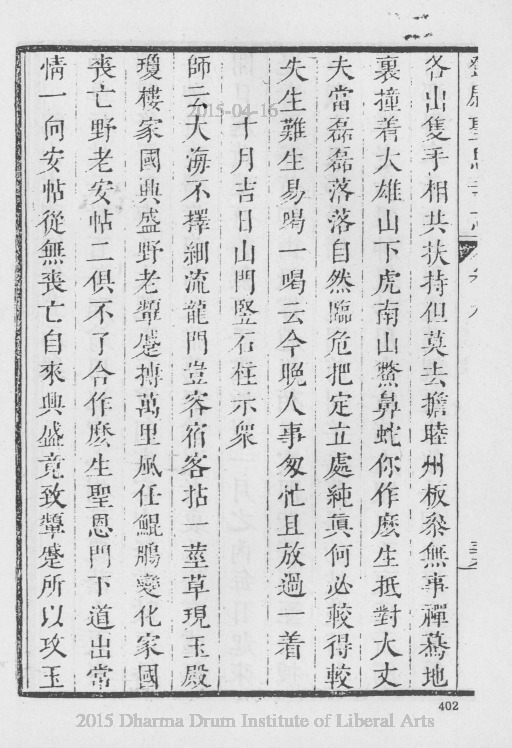 各出隻手相共扶持但莫去擔睦州板參無事禪驀地
裏撞着大雄山下虎南山鱉鼻蛇你作麽生抵對大丈
夫當磊磊落落自然臨危把定立處純眞何必較得較
失生難生易喝一喝云今晚人事匆忙且放過一着
十月吉日山門竪石柱示衆
師云大海不擇細流龍門豈容宿客拈一莖草現玉殿
瓊樓家國興盛野老顰蹙摶萬里風任鯤鵬變化家國
喪亡野老安帖二俱不了合作麽生聖恩門下道出常
情一向安帖從無喪亡自來興盛竟致顰蹙所以攻玉
2015-04-16
402
2015 Dharma Drum Institute of Liberal Arts